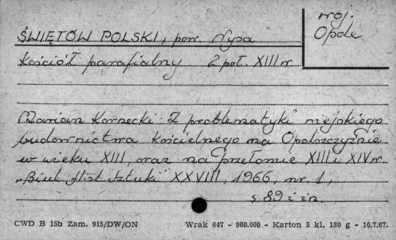 ŚWIĘTÓW POLSKI, pow. Nysa
woj.
Opole
Kościół parafialny 2 poł. XIII w.
Marian Kornecki: Z problematyki wiejskiego
budownictwa kościelnego na Opolszczyźnie
w wieku XIII, oraz na przełomie XIII i XIV w.
"Biul. Hist. Sztuki" XXVIII, 1966, nr. 1,
s. 89 i in.
CWD B 15b Zam. 915/DW/ON Wrak 647 - 980.000 - Karton 5 kl. 180 g - 10.7.67.